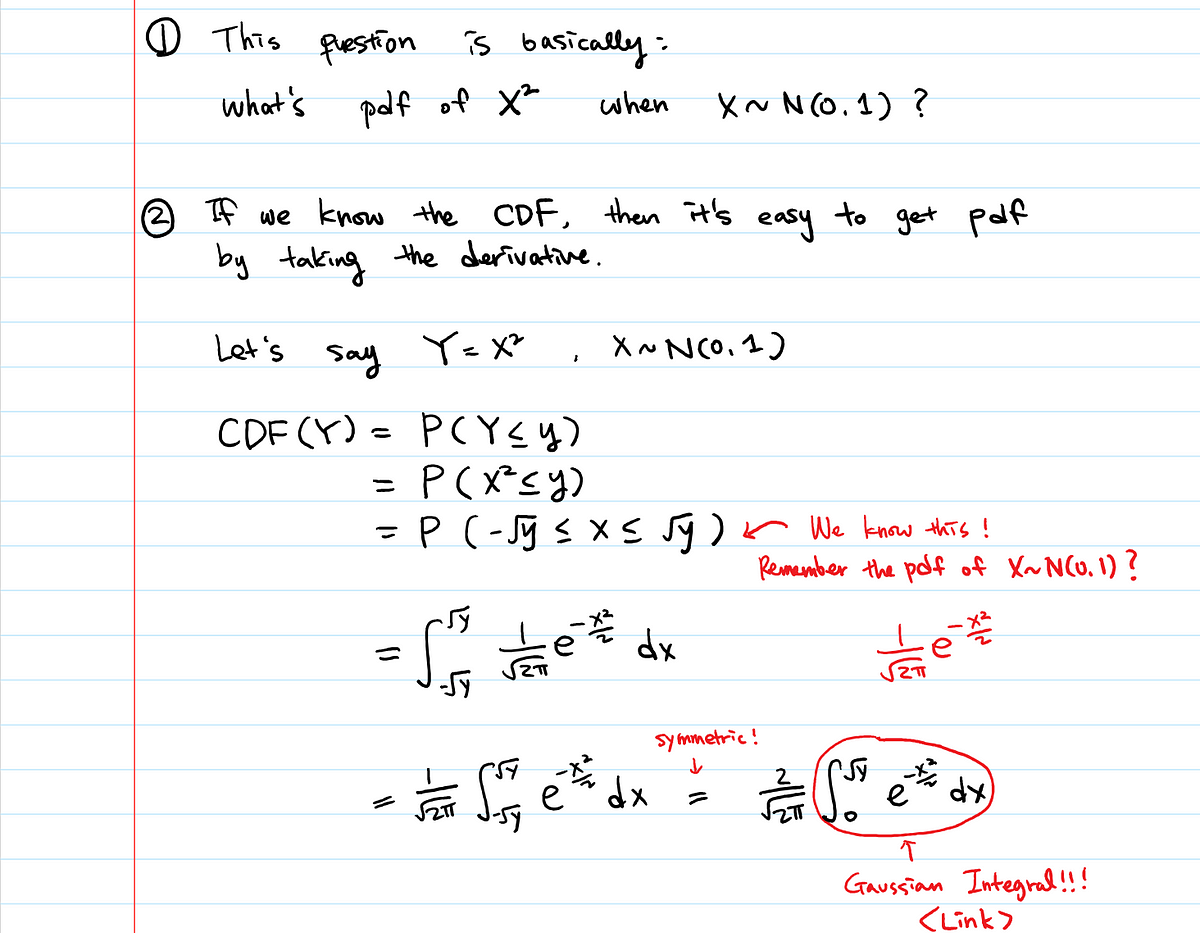 ① This question is basically:
what's pdf of X² when X ~ N(0, 1) ?
② If we know the CDF, then it's easy to get pdf
by taking the derivative.
Let's say Y = X² , X ~ N(0, 1)
CDF(Y) = P(Y ≤ y)
= P(X² ≤ y)
= P(-√y ≤ x ≤ √y) ← We know this !
Remember the pdf of X~N(0, 1) ?
= ∫_{-√y}^{√y} 1/√2π e^{-x²/2} dx 1/√2π e^{-x²/2}
symmetric!
↓
= 1/√2π ∫_{-√y}^{√y} e^{-x²/2} dx = 2/√2π ∫_0^{√y} e^{-x²/2} dx
↑
Gaussian Integral!!!
<Link>